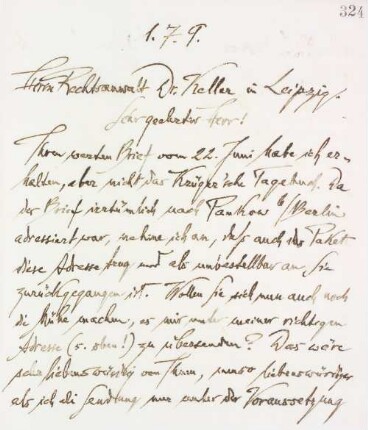 324
1. 7. 9.
Herrn Rechtsanwalt Dr. Keller in Leipzig.
Sehr geehrter Herr!
Ihren werten Brief vom 22. Juni habe ich er-
halten, aber nicht das Krüger'sche Tagebuch. Da
der Brief irrtümlich nach Pankow b/Berlin
adressiert war, nehme ich an, daß auch das Paket
diese Adresse trug und als unbestellbar an Sie
zurückgegangen ist. Wollen Sie sich nun auch noch
die Mühe machen, es mir unter meiner richtigen
Adresse (s. oben!) zu übersenden? Das wäre
sehr liebenswürdig von Ihnen, umso liebenswürdiger
als ich die Sendung nur unter der Voraussetzung